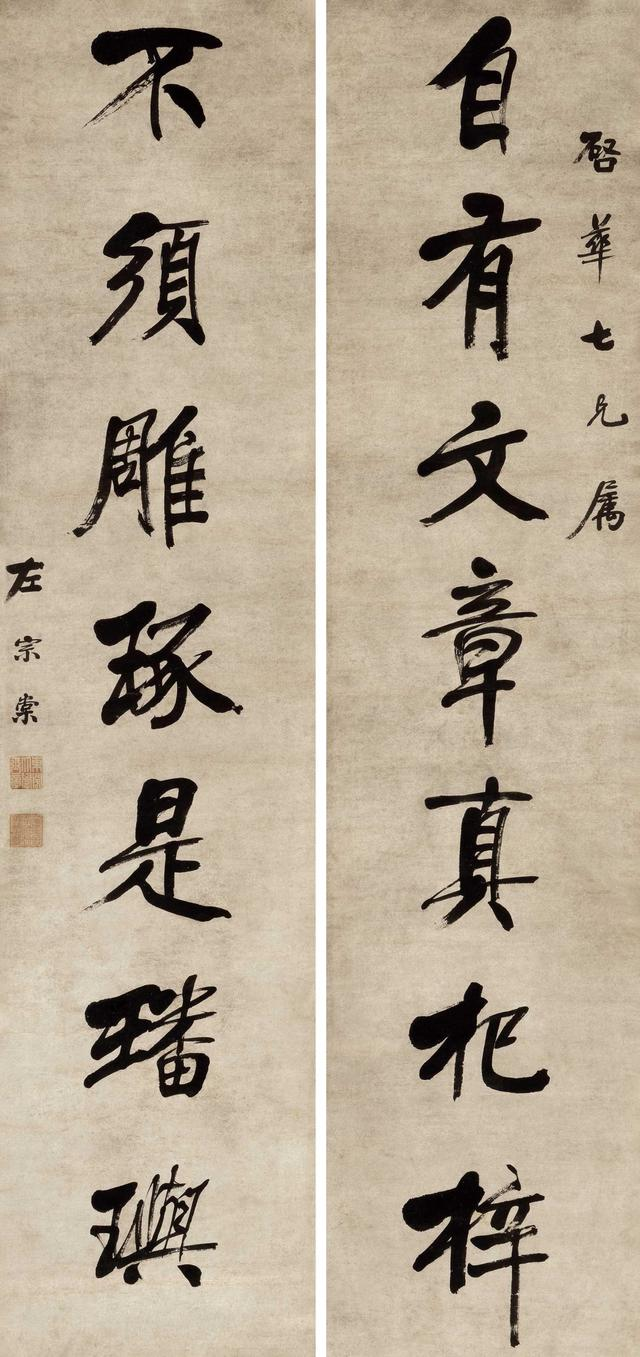 啓華七兄属
自有文章真杞梓
不須雕琢是璠璵
左宗棠